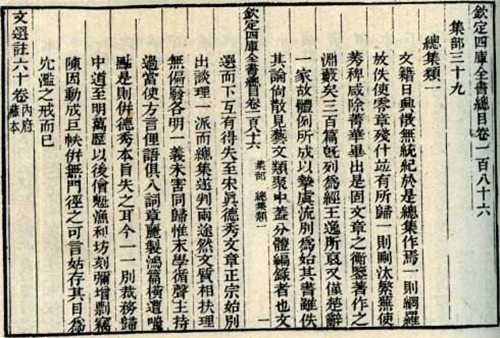 欽定四庫全書總目卷一百八十六
集部三十九
總集類一
文籍日興散無統紀於是總集作焉一則網羅
放佚使零章殘什並有所歸一則刪汰繁蕪使
莠稗咸除菁華畢出是固文章之衡鑒著作之
淵藪矣三百篇既列為經王逸所裒又僅楚辭
一家故體例所成以摯虞流別為始其書雖佚
其論尚散見藝文類聚中蓋分體編錄者也文
欽定四庫全書總目 卷一百八十六 集部 總集類一 一
選而下互有得失至宋真德秀文章正宗始別
出談理一派而總集遂判兩途然文質相扶理
無偏廢各明一義未害同歸惟末學循聲主持
過當使方言俚語俱入詞章麗製鴻篇橫遭嗤
點是則併德秀本旨失之耳今一一別裁務歸
中道至明萬厯以後儈魁漁利坊刻彌增剽竊
陳因動成巨帙併無門徑之可言姑存其目為
冗濫之戒而已
文選註六十卷內府藏本